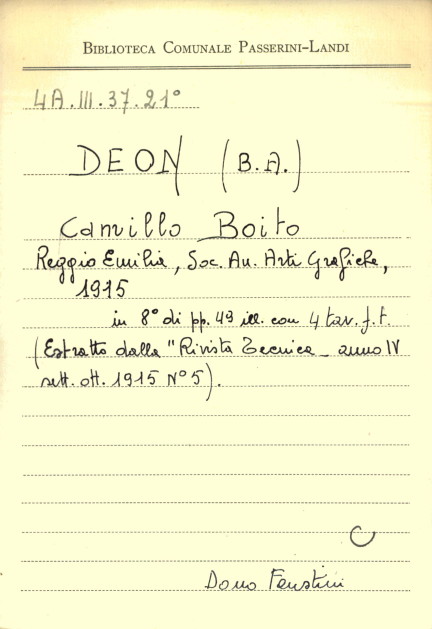 BIBLIOTECA COMUNALE PASSERINI-LANDI
4A.III.37.21°
DEON (B.A.)
Camillo Boito
Reggio Emilia, Soc. An. Arti Grafiche,
1915
in 8° di pp. 49 ill. con 4 tav. f.t.
(Estratto dalla "Rivista Tecnica - anno IV
sett. ott. 1915 N° 5).
C
Dono Faustini